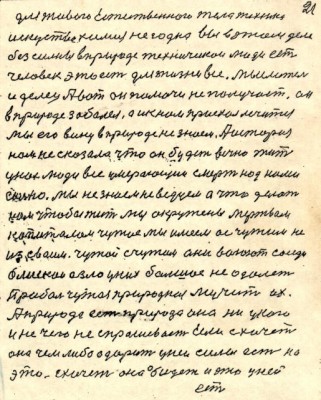 21
для живого естественного тела техника
искуство химия не годна вы в этом деле
без сильны в природе техническ люди ест
человек это ест для жизни все. Мы лежим
и делец А вот он помочи не получает, он
в природе заболел, а к нам приехал лечится
мы его вину в природе не знаем. А история
нам не сказала что он будет вечно жить
у нас люди все умирающия смерт над нами
мы не знаем не ведуем а что делат
нам чтобы жит мы окружены мертвым
капиталом чужое мы имеем а с чужим не
из своим. чужой с чужим они воюют
близком а зло у них большое не одолеет
природная мучит их.
А природе природа она ни у кого
и не чего не спрашивает Если схочет
она чем либо одарит у ней силы ест на
это. схочет она будет и это у ней
ест